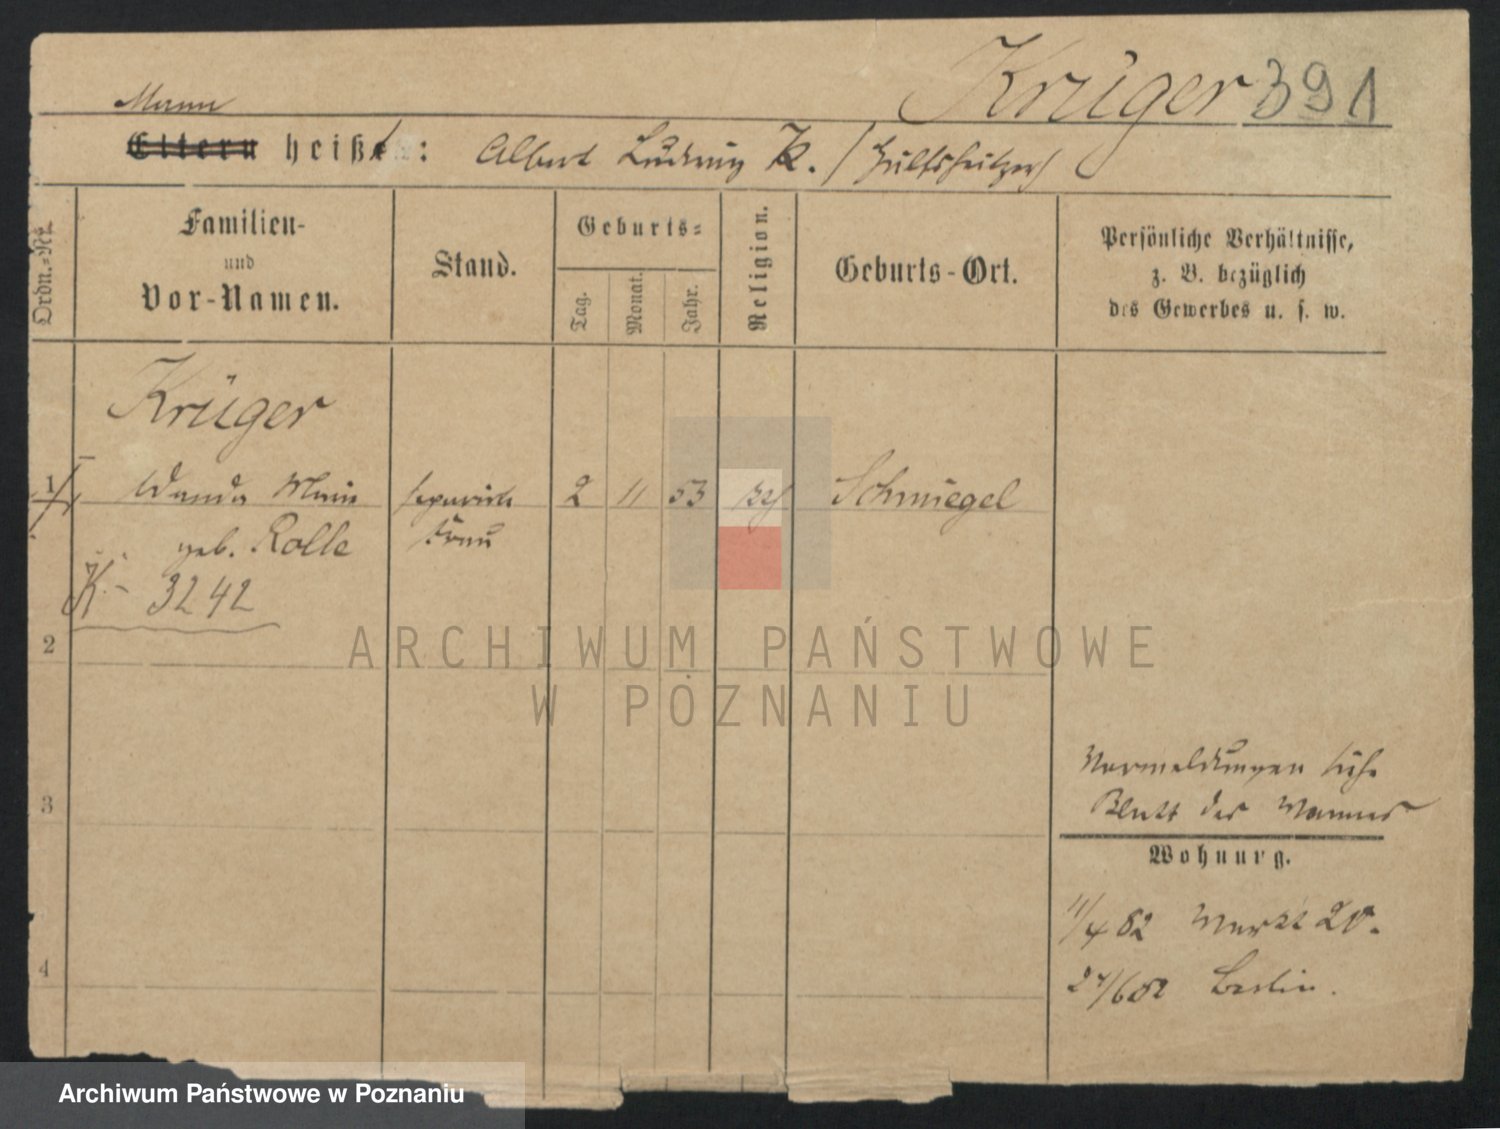 Krüger 391
Mann
Eltern heißt: Albert Ludwig K. /
Ordn.=Nr.
Familien-
und
Vor-Namen.
Stand.
Geburts=
Tag.
Monat.
Jahr.
Religion.
Geburts-Ort.
Persönliche Verhältnisse,
z. B. bezüglich
des Gewerbes u. s. w.
Krüger
1 Wanda Marie separirte 2 11 53 Schmiegel
geb. Rolle Frau
K- 3242
2
3
4
Vormeldungen siehe
Blatt des Mannes
Wohnung.
11/4 82 Markt
24/6 82 Berlin.
ARCHIWUM PAŃSTWOWE
W POZNANIU
Archiwum Państwowe w Poznaniu